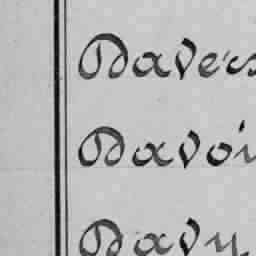 Davers
Davoi
Davy